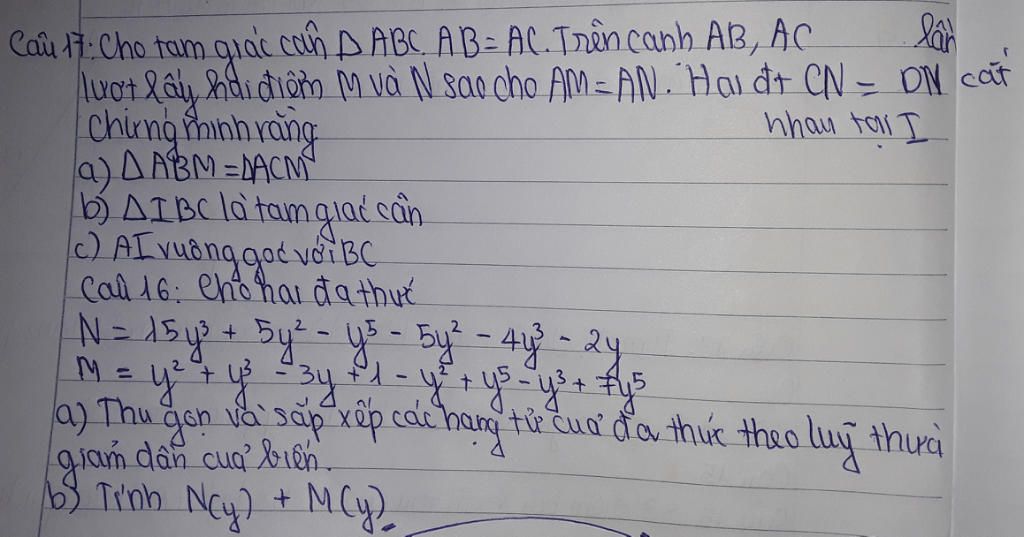 Câu 17: Cho tam giác cân Δ ABC. AB = AC. Trên cạnh AB, AC lần
lượt lấy hai điểm M và N sao cho AM = AN. Hai đt CN = DN cắt
chứng minh rằng nhau tại I
a) Δ ABM = ΔACM
b) ΔIBC là tam giác cân
c) AI vuông góc với BC
Câu 16: Cho hai đa thức
N = 15y³ + 5y² - y⁵ - 5y² - 4y³ - 2y
M = y² + y³ - 3y + 1 - y² + y⁵ - y³ + 7y⁵
a) Thu gọn và sắp xếp các hạng tử của đa thức theo luỹ thừa
giảm dần của biến.
b) Tính N(y) + M(y).